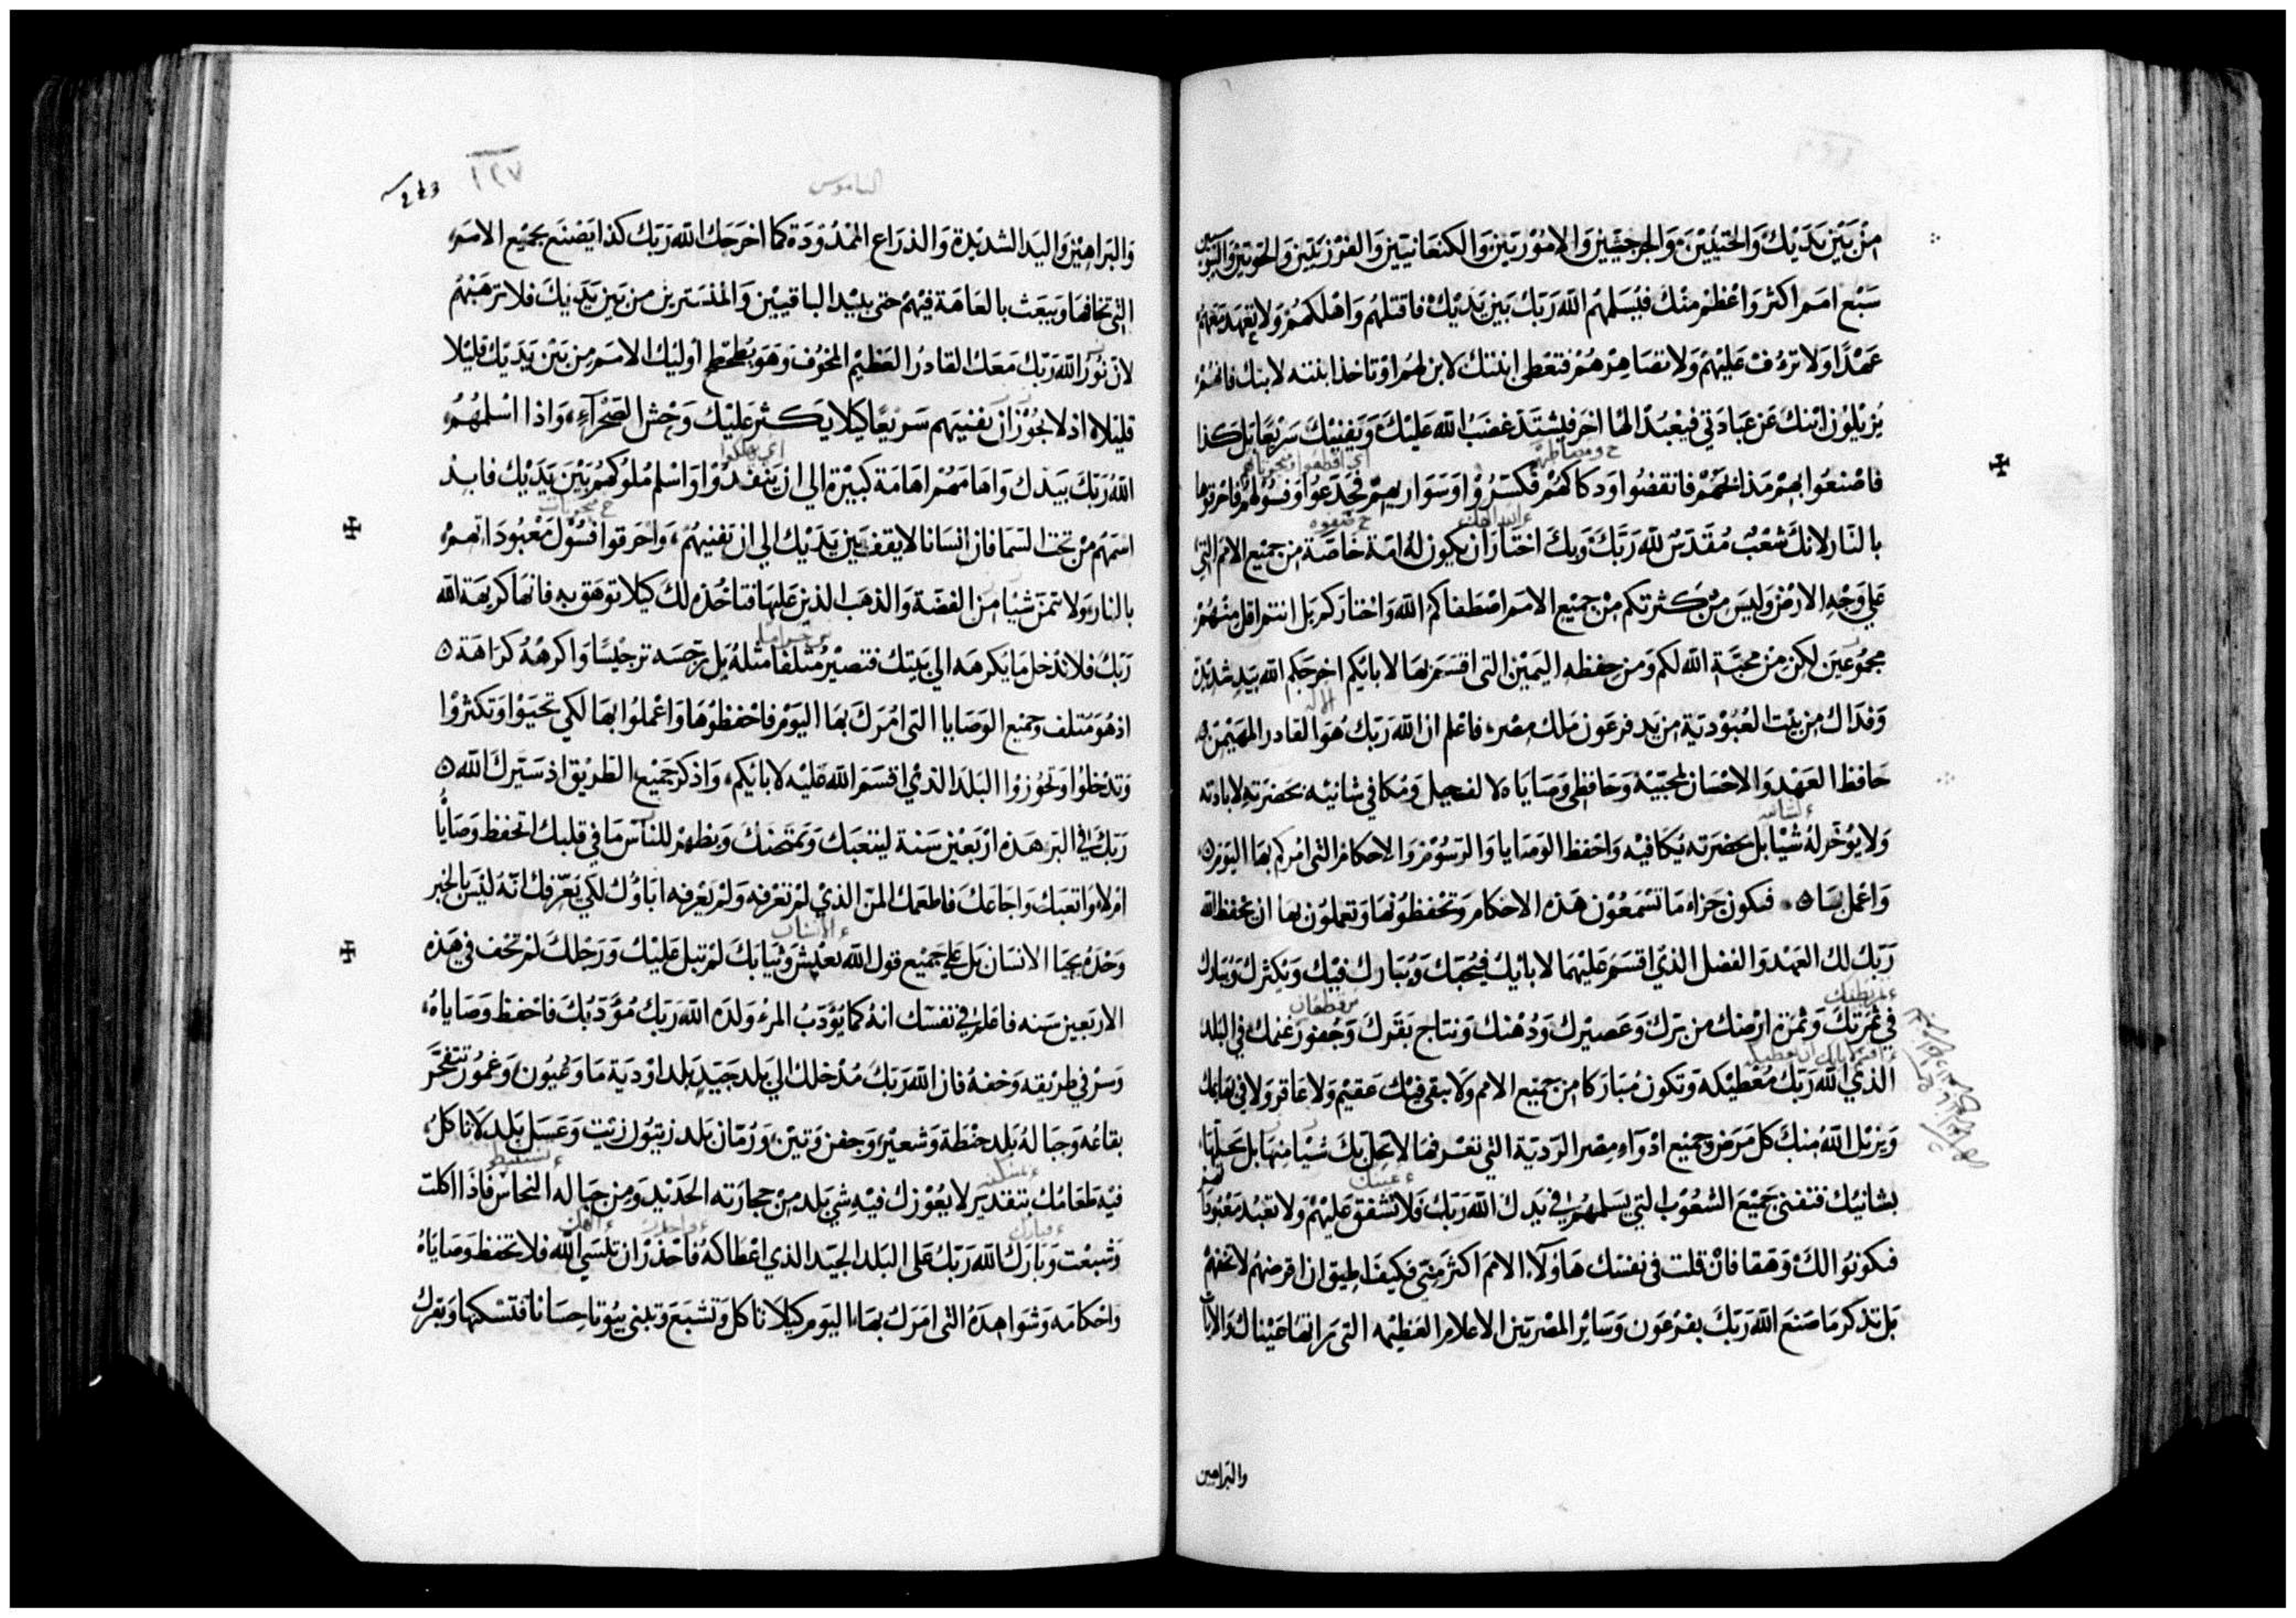 من بين يديك والحثيين والجرجشيين والاموريين والكنعانيين والفرزيين والحويين واليبوسيين
سبع امم اكثر واعظم منك فيسلمهم الله ربك بين يديك فاقتلهم واهلكهم ولا تعهد معهم
عهدا ولا ترءف عليهم ولا تصاهرهم فتعطى ابنتك لابنهم او تاخذ ابنته لابنك فانهم
يزيلون ابنك عن عبادتي فيعبد الها اخر فيشتد غضب الله عليك ويفنيك سريعا بل كذا
فاصنعوا بهم مذابحهم فانقضوا ودكاكهم فكسروا وسواريهم فجدعوا وفسولهم فاحرقوها
بالنار لانك شعب مقدس لله ربك وبك اختار ان يكون له امة خاصة من جميع الامم التي
على وجه الارض وليس من كثرتكم من جميع الامم اصطفاكم الله واختاركم بل انتم اقل منهم
مجموعين لكن من محبة الله لكم ومن حفظه اليمين التى اقسم بها لابايكم اخرجكم الله بيد شديدة
وفداك من بيت العبودية من يد فرعون ملك مصر فاعلم ان الله ربك هو القادر المهيمن
حافظ العهد والاحسان لمحبيه وحافظي وصاياه لالف جيل ومكافي شانيه بحضرته لابادته
ولا يوخر له شيا بل بحضرته يكافيه واحفظ الوصايا والرسوم والاحكام التى امركم بها اليوم
واعمل بها فيكون جزاء ما تسمعون هذه الاحكام وتحفظونها وتعملون بها ان يحفظ الله
ربك لك العهد والفضل الذي اقسم عليهما لابايك فيحبك ويبارك فيك ويكثرك ويبارك
في ثمرتك وثمرة ارضك من برك وعصيرك ودهنك ونتاج بقرك وجفور غنمك في البلد
الذي الله ربك معطيكه وتكون مباركا من جميع الامم ولا يبقى فيك عقيم ولا عاقر ولا في بهايمك
ويزيل الله منك كل مرض وجميع ادواء مصر الردية التي تعرفها لا يحل بك شيا منها بل يحلها
بشانيك فتفنى جميع الشعوب التي يسلمهم في يدك الله ربك فلا تشفق عليهم ولا تعبد معبوداتهم
فيكونوا لك وهقا فان قلت في نفسك هاولاء الامم اكثر مني فكيف اطيق ان اقرضهم لا تخفهم
بل تذكر ما صنع الله ربك بفرعون وساير المصريين الاعلام العظيمه التى راتها عيناك والايات
والبراهين
الناموس
١٢٧
243
والبراهين واليد الشديدة والذراع الممدودة كما اخرجك الله ربك كذا يصنع بجميع الامم
التي تخافها ويبعث بالعاهة فيهم حتى يبيد الباقيين والمنستريين من بين يديك فلا ترهبهم
لان نور الله ربك معك القادر العظيم المخوف وهو يطحطح اوليك الامم من بين يديك قليلا
قليلا اذ لا يجوز ان تفنيهم سريعا كيلا يكثر عليك وحش الصحراء واذا اسلمهم
الله ربك بيدك واهامهم اهامة كبيرة الي ان ينفدوا واسلم ملوكهم بين يديك فابد
اسمهم من تحت السما فان انسانا لا يقف بين يديك الي ان تفنيهم واحرقوا فسول معبوداتهم
بالنار ولا تتمن شيا من الفضة والذهب الذين عليها فتاخذه لك كيلا توهق به فانها كريهة الله
ربك فلا تدخل ما يكرهه الي بيتك فتصير متلفا مثله بل رجسه ترجيسا واكرهه كراهة
اذ هو متلف وجميع الوصايا التى امرك بها اليوم فاحفظوها واعملوا بها لكي تحيوا وتكثروا
وتدخلوا وتحوزوا البلد الذي اقسم الله عليه لابايكم واذكر جميع الطريق اذ سيرك الله
ربك في البر هذه اربعين سنة ليتعبك ويمتحنك ويظهر للناس ما في قلبك اتحفظ وصاياه
ام لا واتعبك واجاعك فاطعمك المن الذي لم تعرفه ولم يعرفه اباوك لكي يعرفك انه ليس بالخبز
وحده يحيا الانسان بل على جميع قول الله يعيش وثيابك لم تبل عليك ورجلك لم تحف في هذه
الاربعين سنه فاعلم في نفسك انه كما يؤدب المرء ولده الله ربك مؤدبك فاحفظ وصاياه
وسر في طريقه وخفه فان الله ربك مدخلك الي بلد جيد بلد اودية ما وعيون وغمور تتفجر
بقاعه وجباله بلد حنطة وشعير وجفن وتين ورمان بلد زيتون زيت وعسل بلد لا تاكل
فيه طعامك بتقدير لا يعوزك فيه شي بلد من حجارته الحديد ومن جباله النحاس فاذا اكلت
وشبعت وبارك الله ربك على البلد الجيد الذي اعطاكه فاحذر ان تنسي الله فلا تحفظ وصاياه
واحكامه وشواهده التى امرك بها اليوم كيلا تاكل وتشبع وتبني بيوتا حسانا فتسكنها وبقرك